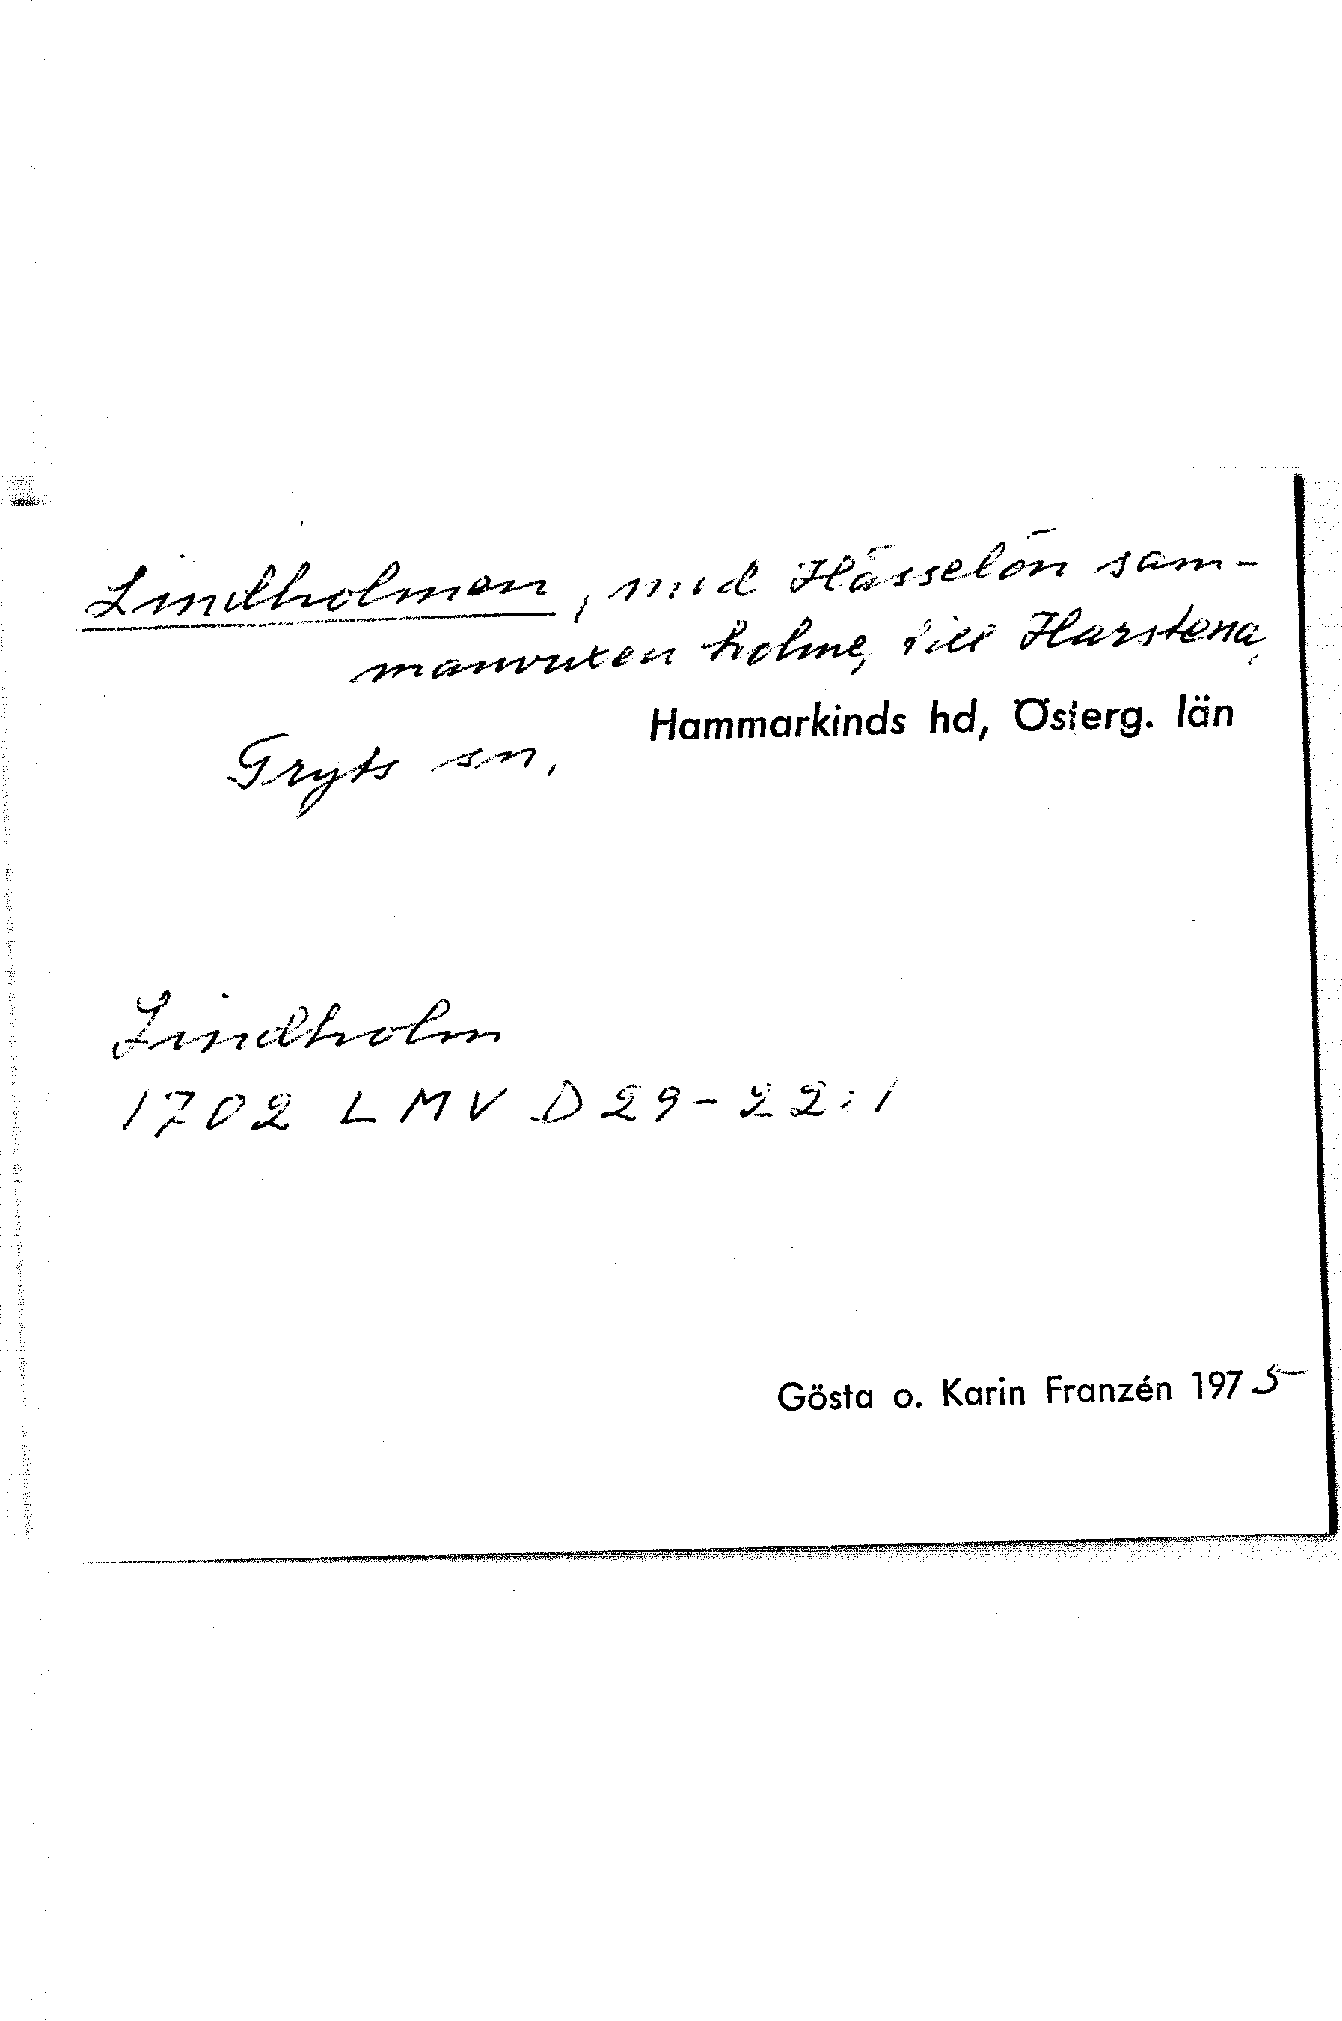 Lindholmen, med Hässelön sam-
manvuxen holme, till Harstena,
Hammarkinds hd, Österg. län
Gryts sn,
Lindholm
1702 LMV D29-22:1
Gösta o. Karin Franzén 1975